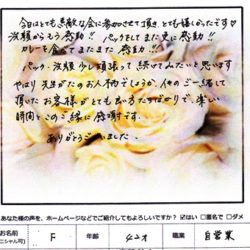 今日はとても素敵な会に参加させて頂き、とても嬉しかったです♡
洗顔からもう感動!! パックをしてまた更に感動!!
カレーを食べてまたまた感動!!
パック・洗顔 少し頑張って 続けてみたいと思います
やはり 先生がたのお人柄でしょうか、他のご一緒して
頂いたお客様がとても良い方たちばかりで、楽しい
時間とこのご縁に感謝です。
ありがとうございました。
あなた様の声を、ホームページなどでご紹介してもよろしいですか? ☑はい □匿名で □ダメ
お名前 F 年齢 42才 職業 自営業
ニシャル可)